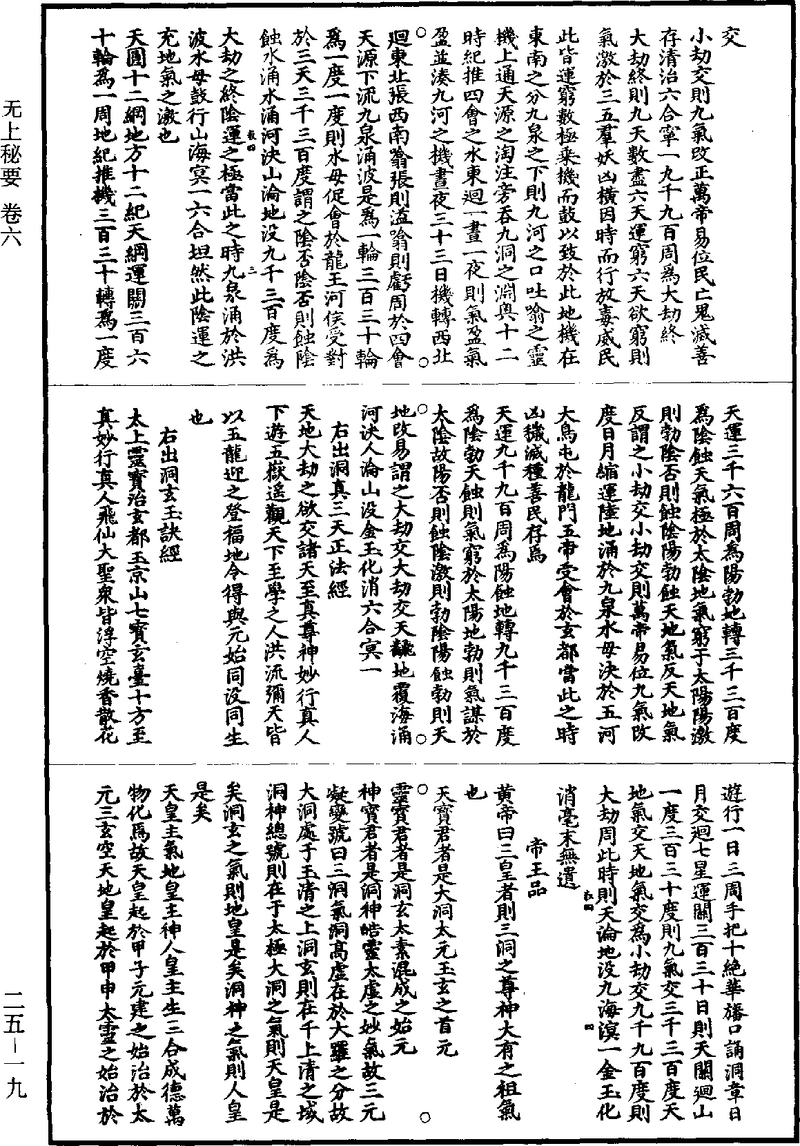 交
小劫交則九氣改正萬帝易位民亡鬼滅善
存清治六合寧一九千九百周爲大劫終
大劫終則九天數盡六天運窮六天欲窮則
氣激於三五羣妖凶橫因時而行放毒威民
此皆運窮數極乘機而鼓以致於此地機在
東南之分九泉之下則九河之口吐噏之靈
機上通天源之淘注旁吞九洞之淵輿十二
時紀推四會之水東迴一晝一夜則氣盈氣
盈並湊九河之機晝夜三十三日機轉西北
迴東北張西南噏張則溢噏則虧周於四會
天源下流九泉涌波是爲一輪三百三十輪
爲一度一度則水母促會於龍王河侯受對
於三天三千三百度謂之陰否陰否則蝕陰
蝕水涌水涌河決山淪地沒九千三百度爲
大劫之終陰運之極當此之時九泉涌於洪
波水母鼓行山海冥一六合坦然此陰運之
充地氣之激也
天圓十二綱地方十二紀天綱運關三百六
十輪爲一周地紀推機三百三十轉爲一度
天運三千六百周爲陽勃地轉三千三百度
爲陰蝕天氣極於太陰地氣窮于太陽陽激
則勃陰否則蝕陰陽勃蝕天地氣反天地氣
反謂之小劫交小劫交則萬帝易位九氣改
度日月縮運陸地涌於九泉水母決於五河
大鳥屯於龍門五帝受會於玄都當此之時
凶穢滅種善民存焉
天運九千九百周爲陽蝕地轉九千三百度
爲陰勃天蝕則氣窮於太陽地勃則氣謀於
太陰故陽否則蝕陰激則勃陰陽蝕勃則天
地改易謂之大劫交大劫交天翻地覆海涌
河決人淪山沒金玉化消六合冥一
右出洞真三天正法經
天地大劫之欲交諸天至真尊神妙行真人
下遊五嶽遥觀天下至學之人洪流彌天皆
以五龍迎之登福地令得與元始同沒同生
也
右出洞玄玉訣經
太上靈寶治玄都玉京山七寶玄臺十方至
真妙行真人飛仙大聖衆皆浮空燒香散花
遊行一日三周手把十絶華旛口誦洞章日
月交迴七星運關三百三十日則天關迴山
一度三百三十度則九氣交三千三百度天
地氣交天地氣交爲小劫交九千九百度則
大劫周此時則天淪地沒九海溟一金玉化
消毫末無遺
帝王品
黄帝曰三皇者則三洞之尊神大有之祖氣
也
天寶君者是大洞太元玉玄之首元
靈寶君者是洞玄太素混成之始元
神寶君者是洞神皓靈太虛之妙氣故三元
凝變號曰三洞氣洞高虛在於大羅之分故
大洞處于玉清之上洞玄則在于上清之域
洞神總號則在于太極大洞之氣則天皇是
矣洞玄之氣則地皇是矣洞神之氣則人皇
是矣
天皇主氣地皇主神人皇主生三合成德萬
物化焉故天皇起於甲子元建之始治於太
元三玄空天地皇起於甲申太靈之始治於
无上秘要 卷六
二五-一九